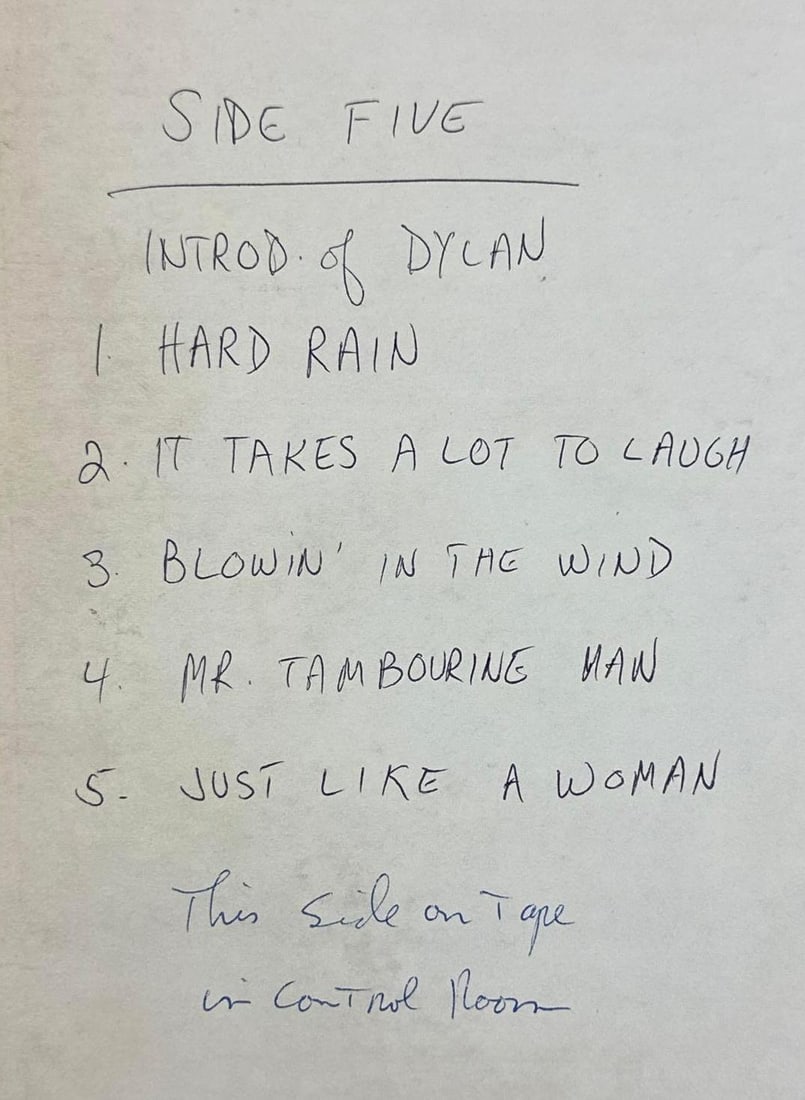 SIDE FIVE
INTROD. of DYLAN
1. HARD RAIN
2. IT TAKES A LOT TO LAUGH
3. BLOWIN' IN THE WIND
4. MR. TAMBOURINE MAN
5. JUST LIKE A WOMAN
This Side on Tape
in Control Room